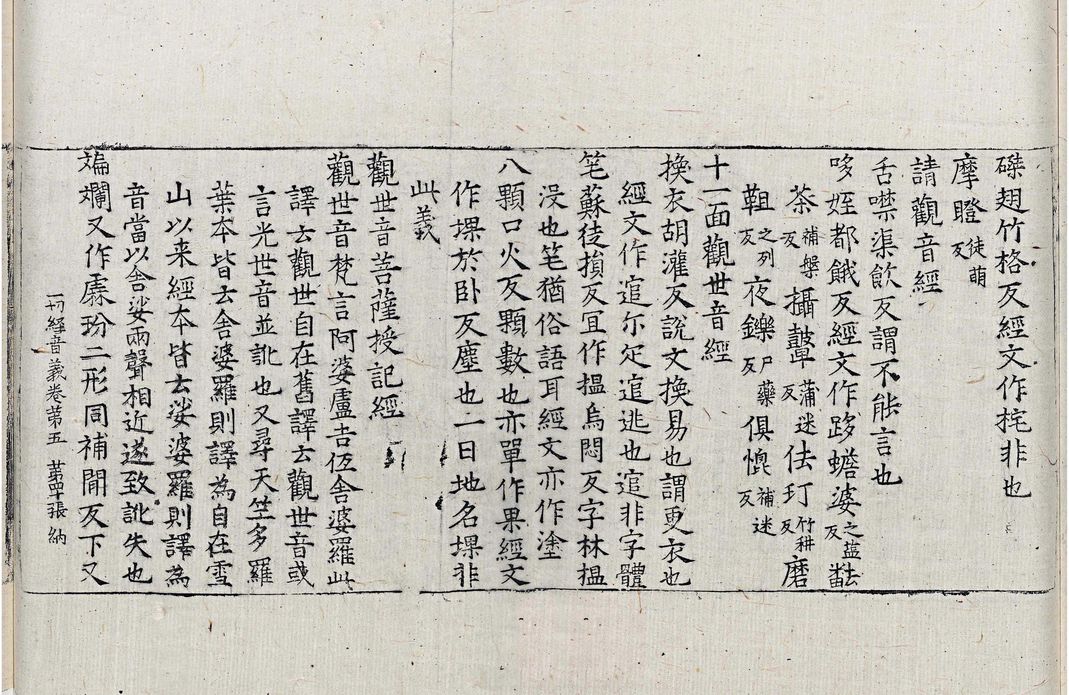 磔翅竹格反經文作挓非也
摩瞪徒萌反
請觀音經
舌噤渠飲反謂不能言也
哆姪都餓反經文作跢蟾婆之鹽反
茶補槃反攝鼙蒲迷反佉玎竹耕反磨
靻之列反夜鑠尸藥反俱㡙補迷反
十一面觀世音經
換衣胡灌反說文換易也謂更衣也
經文作逭尓疋逭逃也逭非字體
笔蘇徒損反冝作揾烏悶反字林揾
没也笔猶俗語耳經文亦作塗
八顆口火反顆數也亦單作果經文
作堁於卧反塵也一曰地名堁非
此義
觀世音菩薩授記經
觀世音梵言阿婆盧吉伍舍婆羅此
譯云觀世自在舊譯云觀世音或
言光世音並訛也又尋天竺多羅
葉本皆云舍婆羅則譯為自在雪
山以来經本皆云娑婆羅則譯為
音當以舍娑兩聲相近遂致訛失也
斒斕又作虨玢二形同補閒反下又
一切經音義卷第五 第 張 納